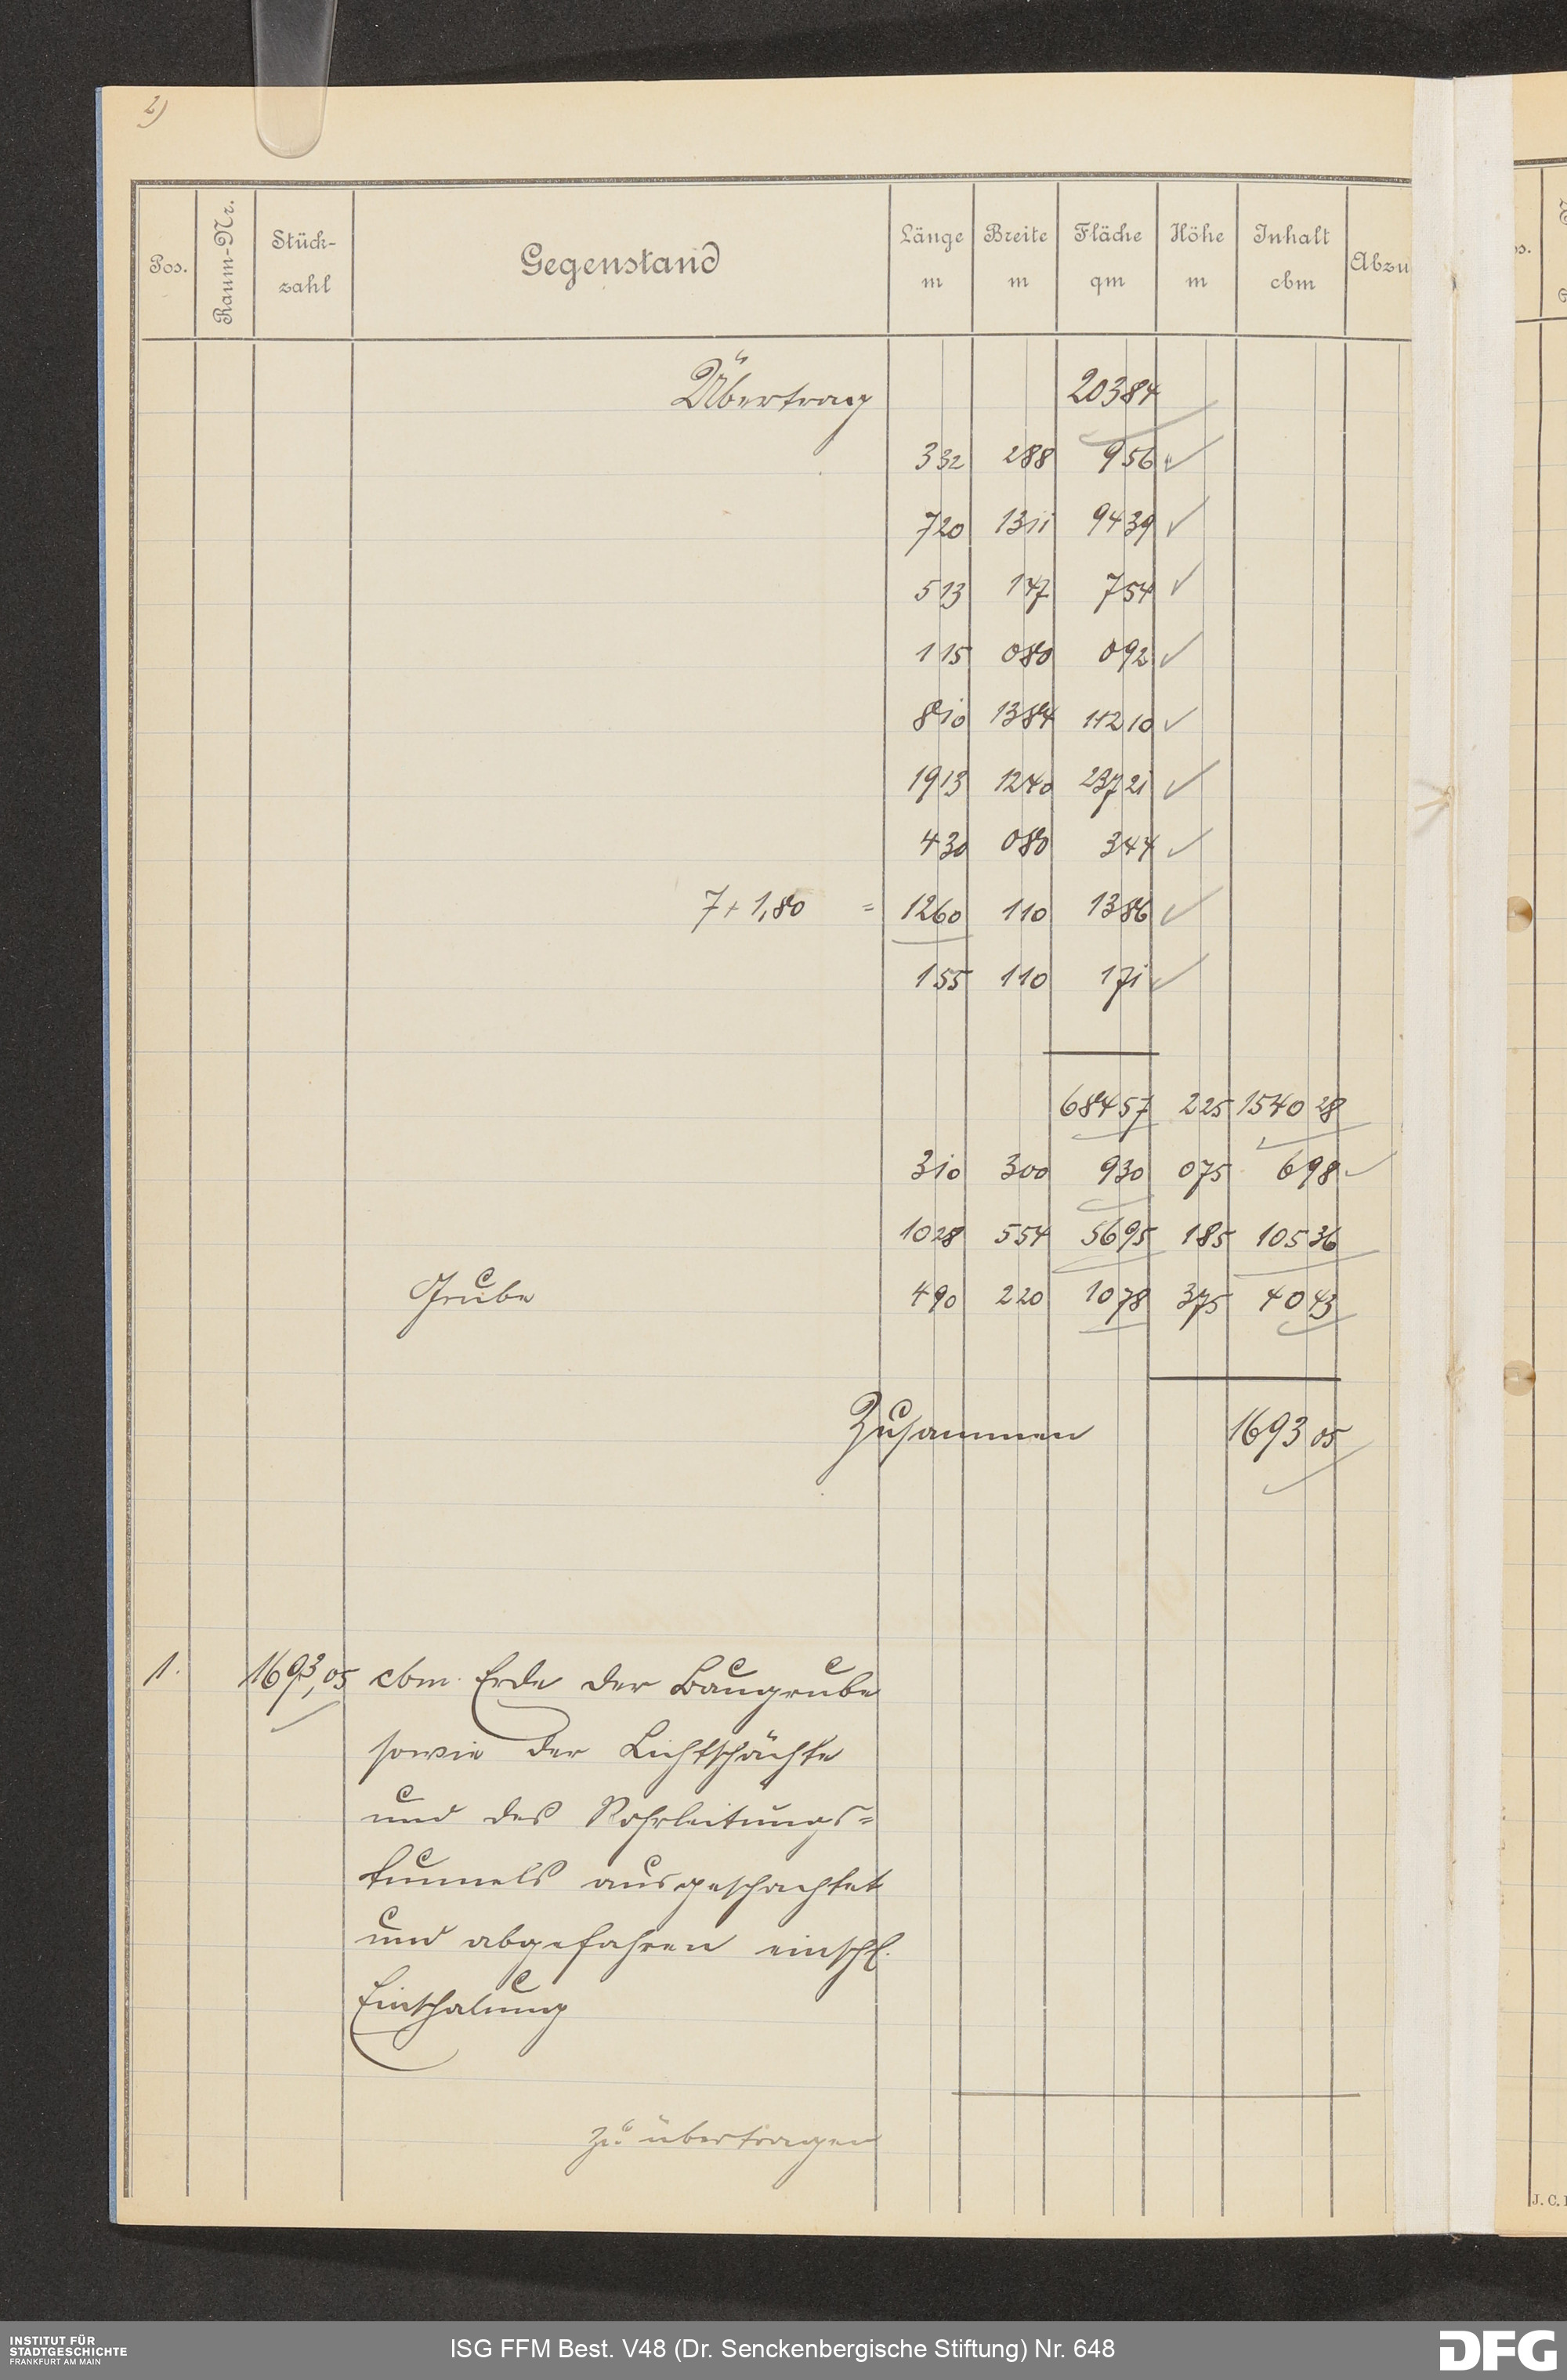 2)
Pos. Raum-Nr. Stück-zahl Gegenstand Länge m Breite m Fläche qm Höhe m Inhalt cbm Abzu
Übertrag 203 84
3 32 2 88 9 56
7 20 13 11 94 39
5 13 1 47 7 54
1 15 0 80 0 92
8 10 13 84 112 10
19 13 12 40 237 21
4 30 0 80 3 44
7 + 1,80 = 12 60 1 10 13 86
1 55 1 10 1 71
684 57 2 25 1540 28
3 10 3 00 9 30 0 75 6 98
10 28 5 54 56 95 1 85 105 36
Grube 4 90 2 20 10 78 3 75 40 43
Zusammen 1693 05
1. 1693,05 cbm Erde der Baugrube
sowie der Lichtschächte
und des Rohrleitungs=
tunnels ausgeschachtet
und abgefahren einschl.
Einschalung
zu übertragen
J. C.
INSTITUT FÜR
STADTGESCHICHTE
FRANKFURT AM MAIN
ISG FFM Best. V48 (Dr. Senckenbergische Stiftung) Nr. 648
DFG